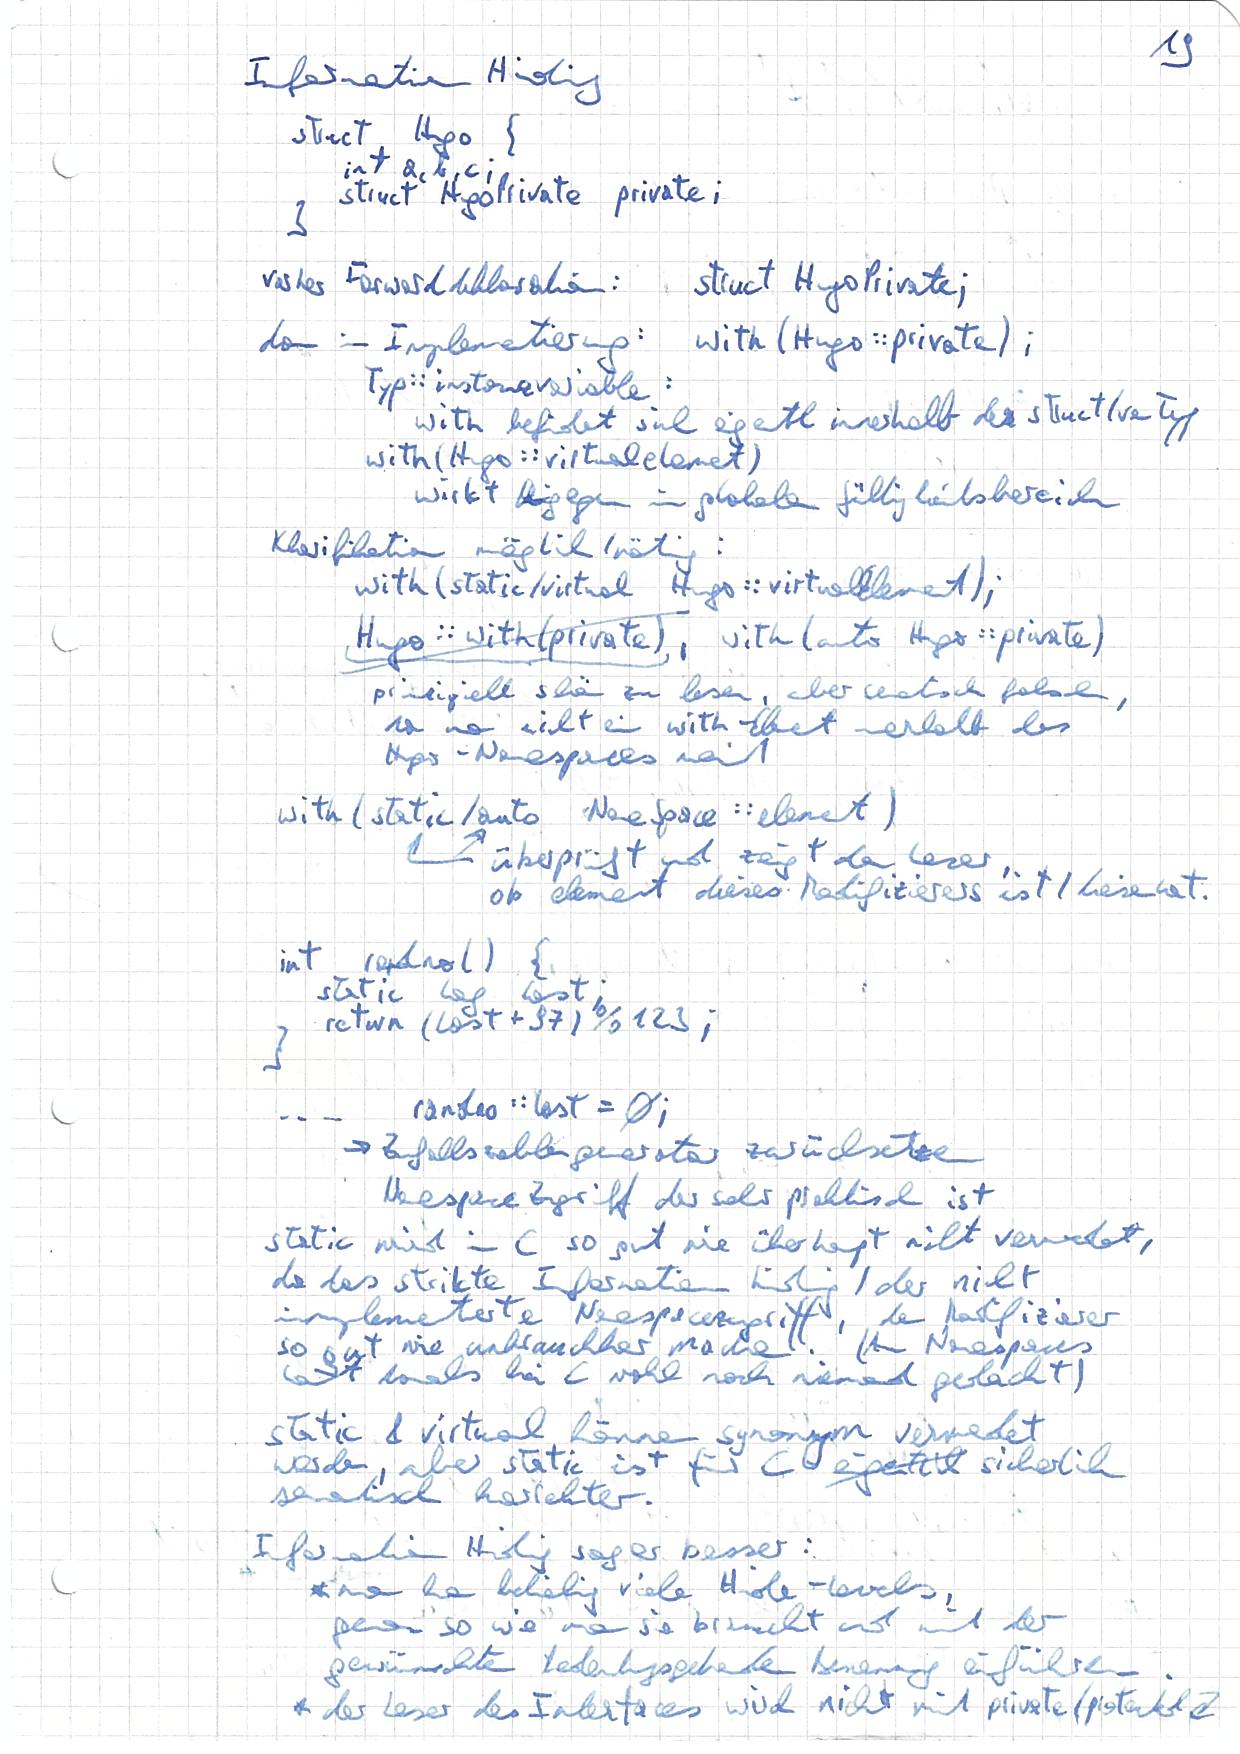 19
Information Hiding
struct Hugo {
int a, b, c;
struct HugoPrivate private;
}
vorher Forwarddeklaration: struct HugoPrivate;
dann in Implementierung: with (Hugo::private);
Typ::instanzvariable:
with befindet sich eigentl innerhalb der struct/
with(Hugo::virtualelement)
wirkt hingegen in globalen Gültigkeitsbereich
Klassifikation möglich/nötig:
with(static/virtual Hugo::virtualElement);
Hugo::with(private), with(auto Hugo::private)
prinzipiell schön zu lesen, aber semantisch falsch,
da man nicht ein with-Element innerhalb des
Hugo-Namespaces meint
with(static/auto Namespace::element)
überprüft und zeigt dem Leser,
ob element dieses Modifizierers ist/
int random() {
static long last;
return (last + 37) % 123;
}
... random::last = 0;
→ Zufallszahlengenerator zurücksetzen
Namespace Zugriff der sehr praktisch ist
static wird in C so gut wie überhaupt nicht verwendet,
da das strikte Information Hiding / der nicht
implementierte Namespacezugriff, den Modifizierer
so gut wie unbrauchbar machen. (An Namespaces
hat damals bei C wohl noch niemand gedacht)
static & virtual können synonym verwendet
werden, aber static ist für C eigentlich sicherlich
semantisch korrekter.
Information Hiding sogar besser:
* man kann beliebig viele Hide-Levels,
genau so wie man sie braucht und mit der
gewünschten bedeutungsgebenden Benennung einführen.
* der Leser des Interfaces wird nicht mit private/protected